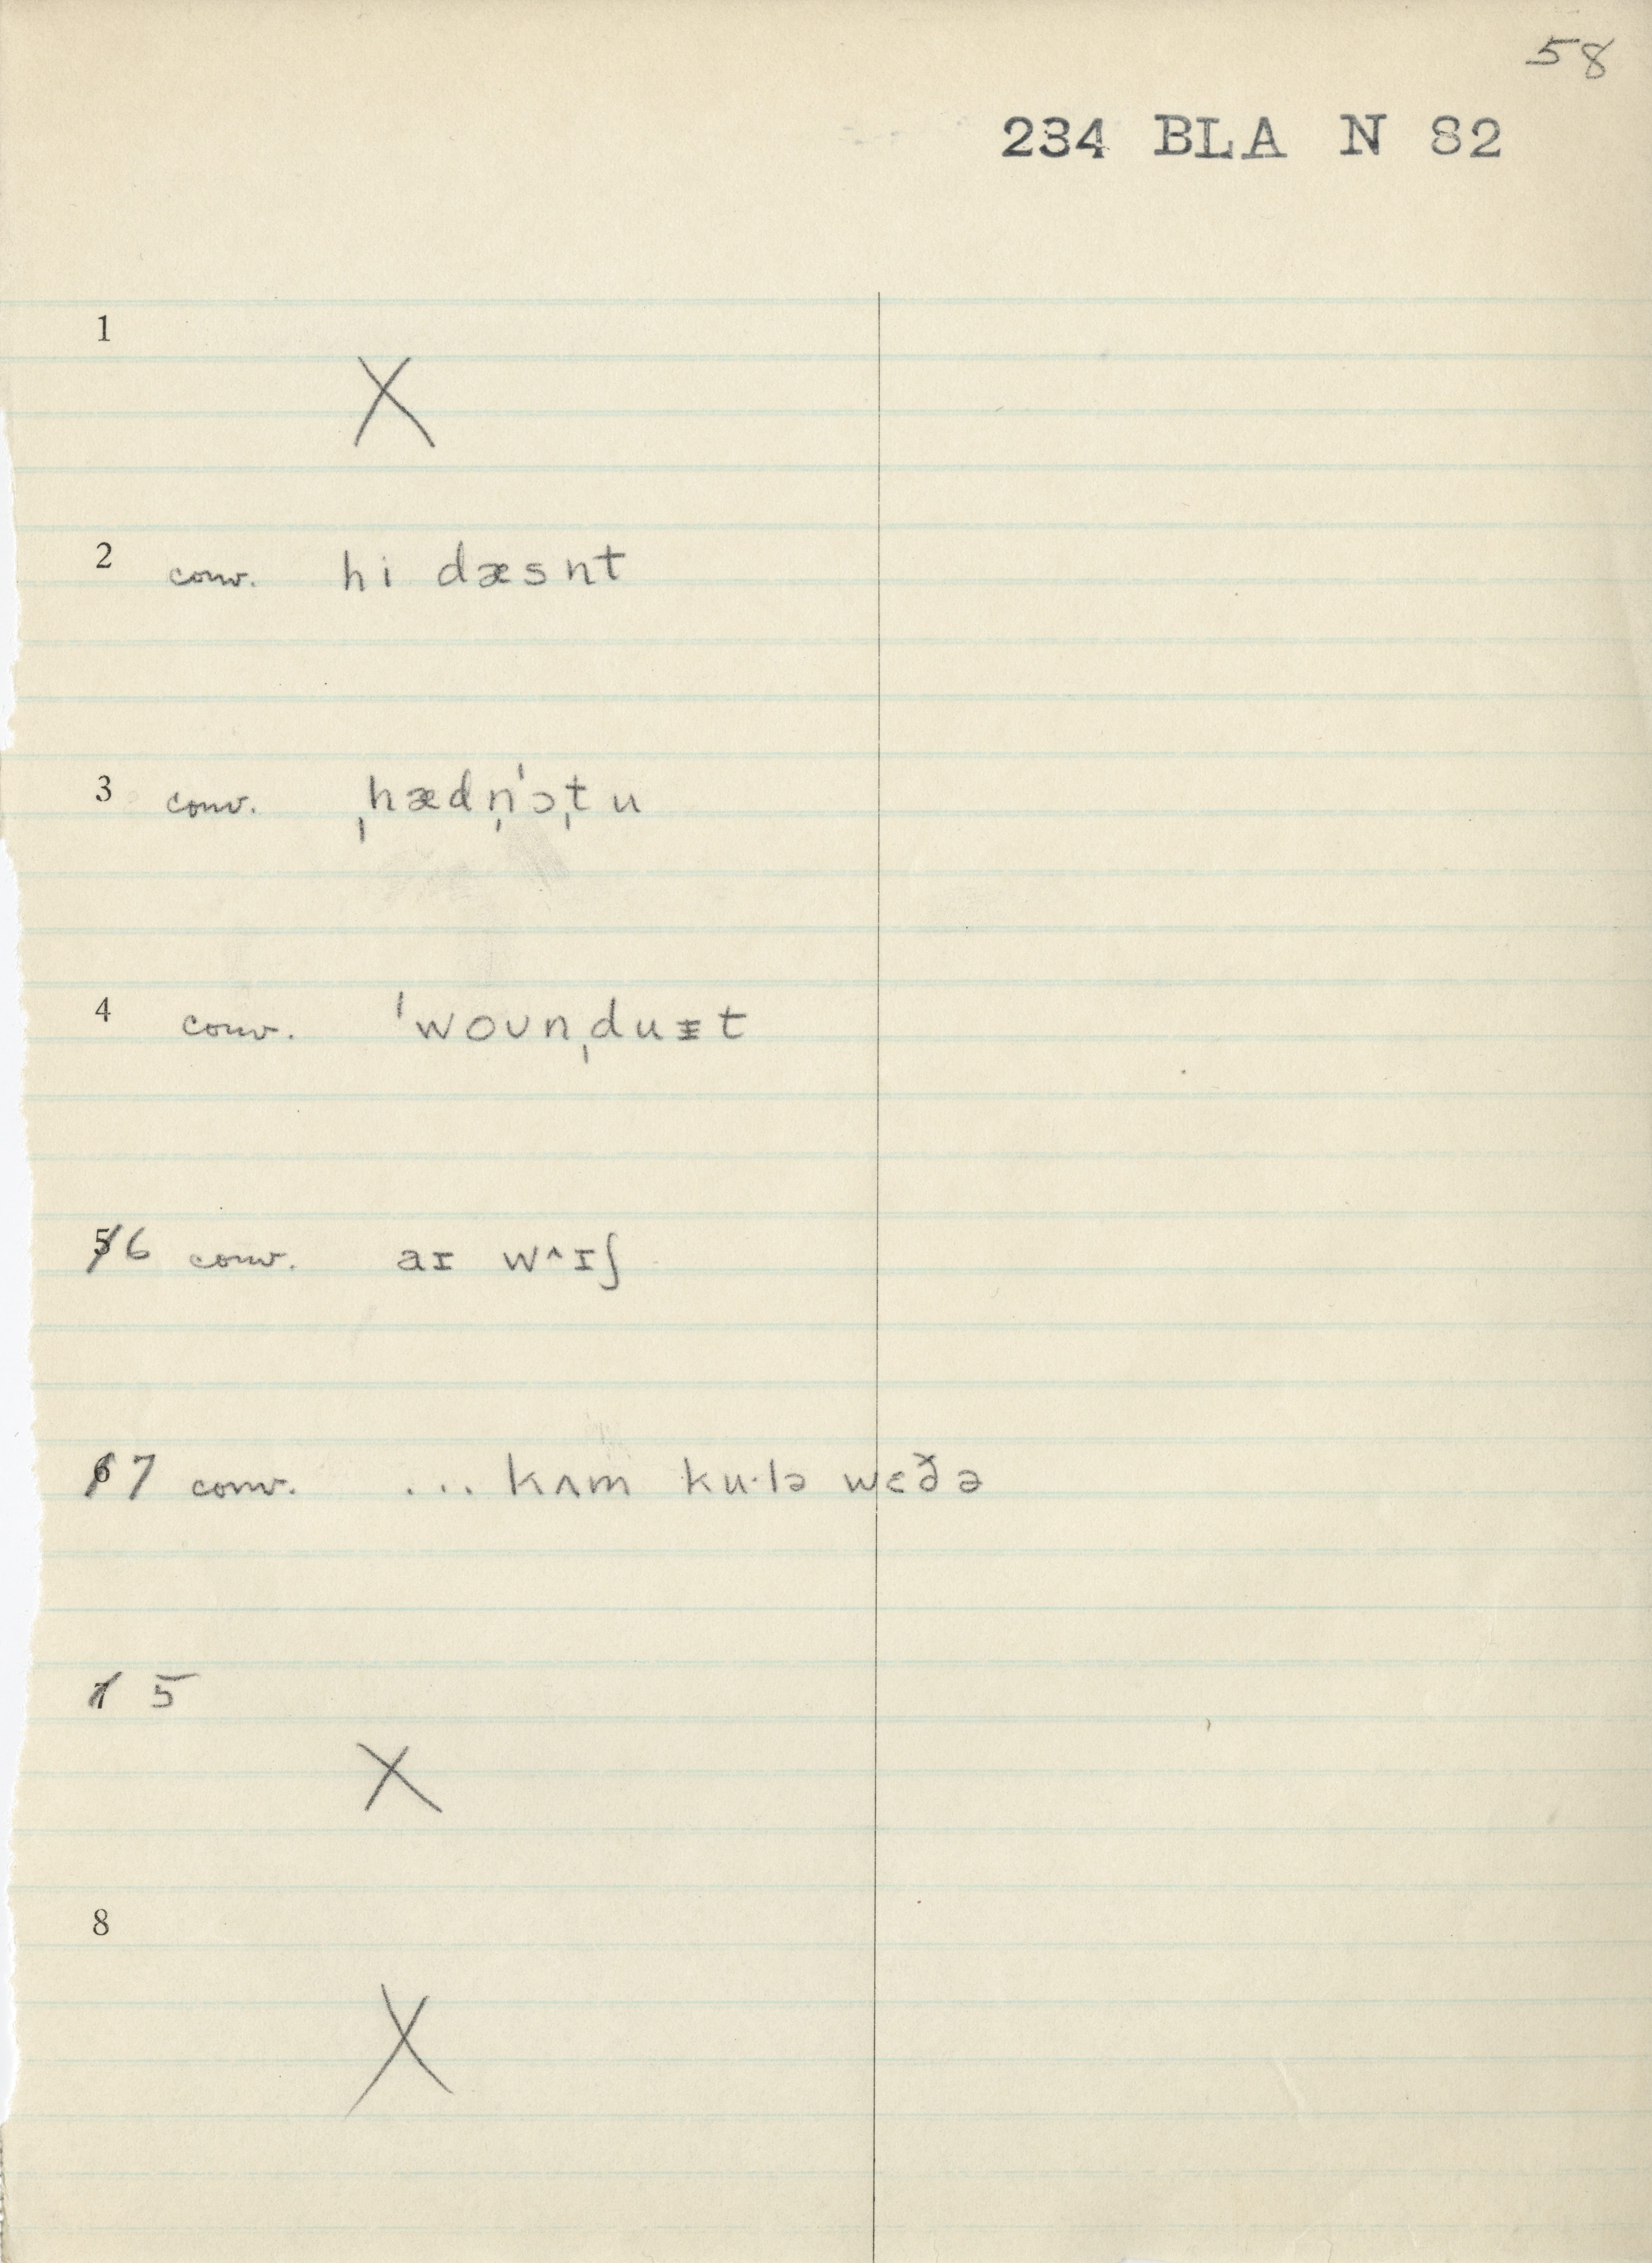 58
234 BLA N 82
1
X
2 conv. hi dæsnt
3 conv. ˌhædn̩ˈɔˌtu
4 conv. ˈwoʊnˌduᵻt
5 6 conv. aɪ wᶺɪʃ
6 7 conv. ... kʌm ku·lə wɛðə
7 5
X
8
X